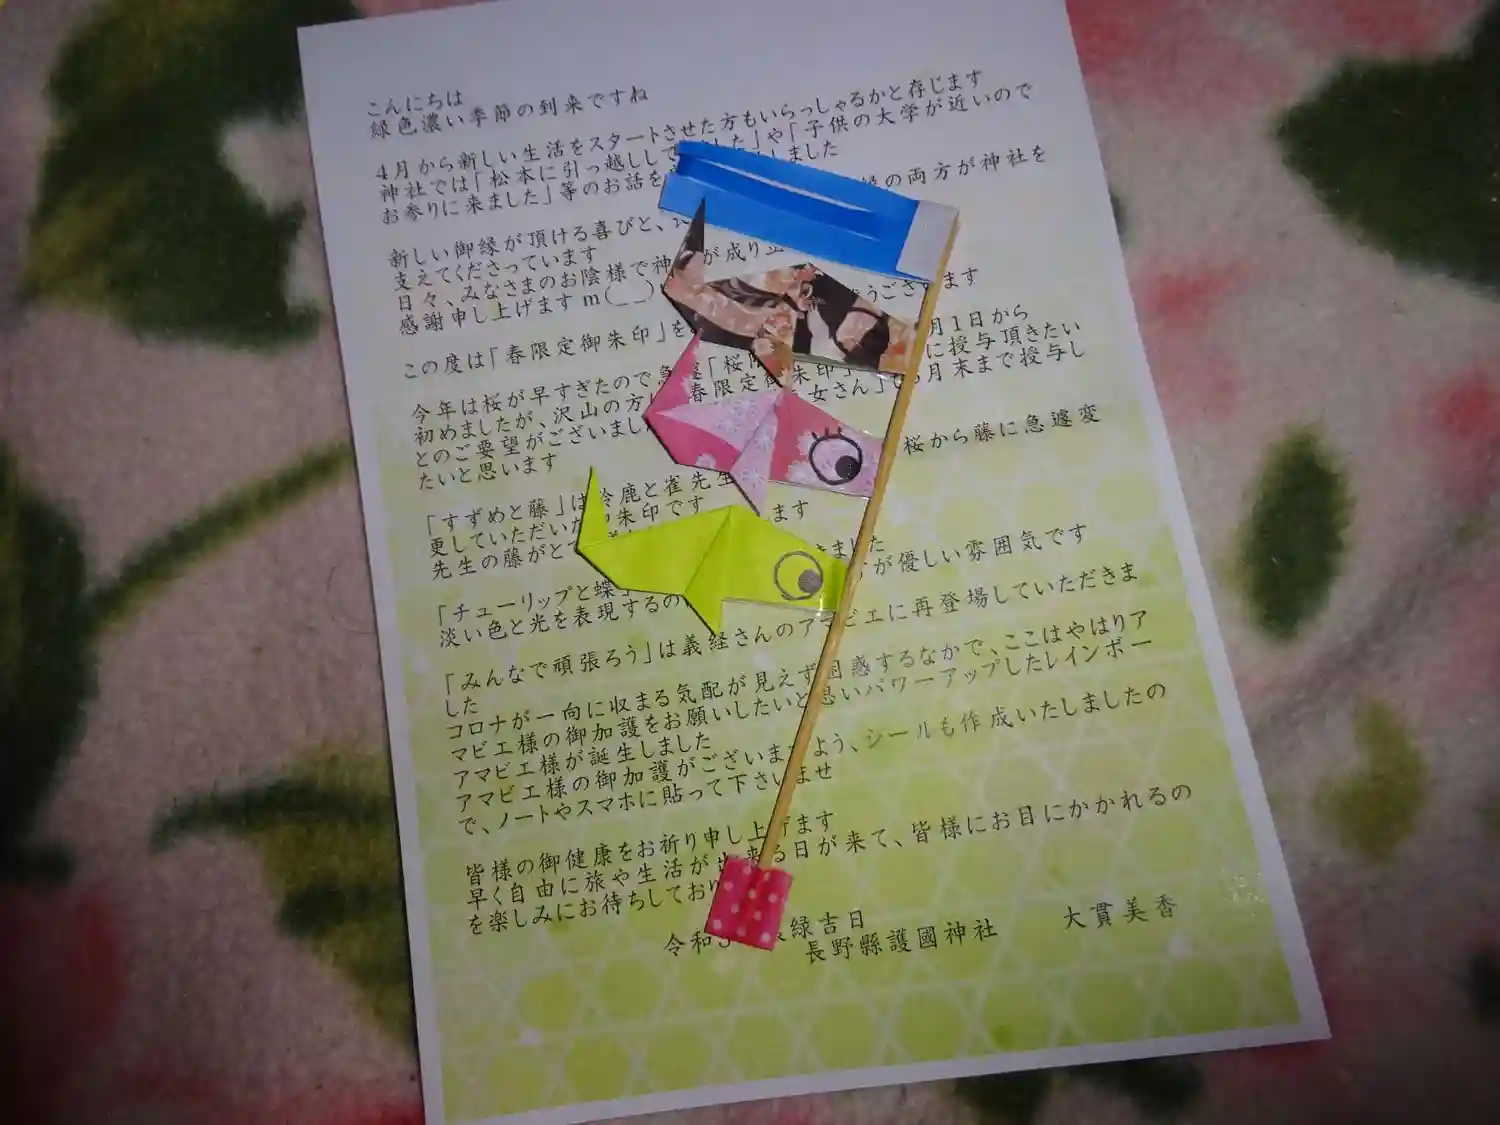 こんにちは
緑色濃い季節の到来ですね
4月から新しい生活をスタートさせた方もいらっしゃるかと存じます
神社では「松本に引っ越して した」や「子供の大学が近いので
お参りに来ました」等のお話を しました
新しい御縁が頂ける喜びと、 の両方が神社を
支えてくださっています
日々、みなさまのお陰様で神 が成り立
感謝申し上げますm(__)m うございます
この度は「春限定御朱印」を
今年は桜が早すぎたので急遽「桜限 月1日から
初めましたが、沢山の方 春限定御朱印 に授与頂きたい
とのご要望がございまし 女さん」 月末まで授与し
たいと思います
「すずめと藤」は鈴鹿と雀先生 桜から藤に急遽変
更していただいた 朱印です
先生の藤がとて ます
「チューリップと蝶 きました
淡い色と光を表現するの が優しい雰囲気です
「みんなで頑張ろう」は義経さんのアマビエに再登場していただきま
した
コロナが一向に収まる気配が見えず困惑するなかで、ここはやはりア
マビエ様の御加護をお願いしたいと思いパワーアップしたレインボー
アマビエ様が誕生しました
アマビエ様の御加護がございますよう、シールも作成いたしましたの
で、ノートやスマホに貼って下さいませ
皆様の御健康をお祈り申し上げます
早く自由に旅や生活が出来る日が来て、皆様にお目にかかれるの
を楽しみにお待ちしており
令和3 緑吉日
長野縣護國神社 大貫美香